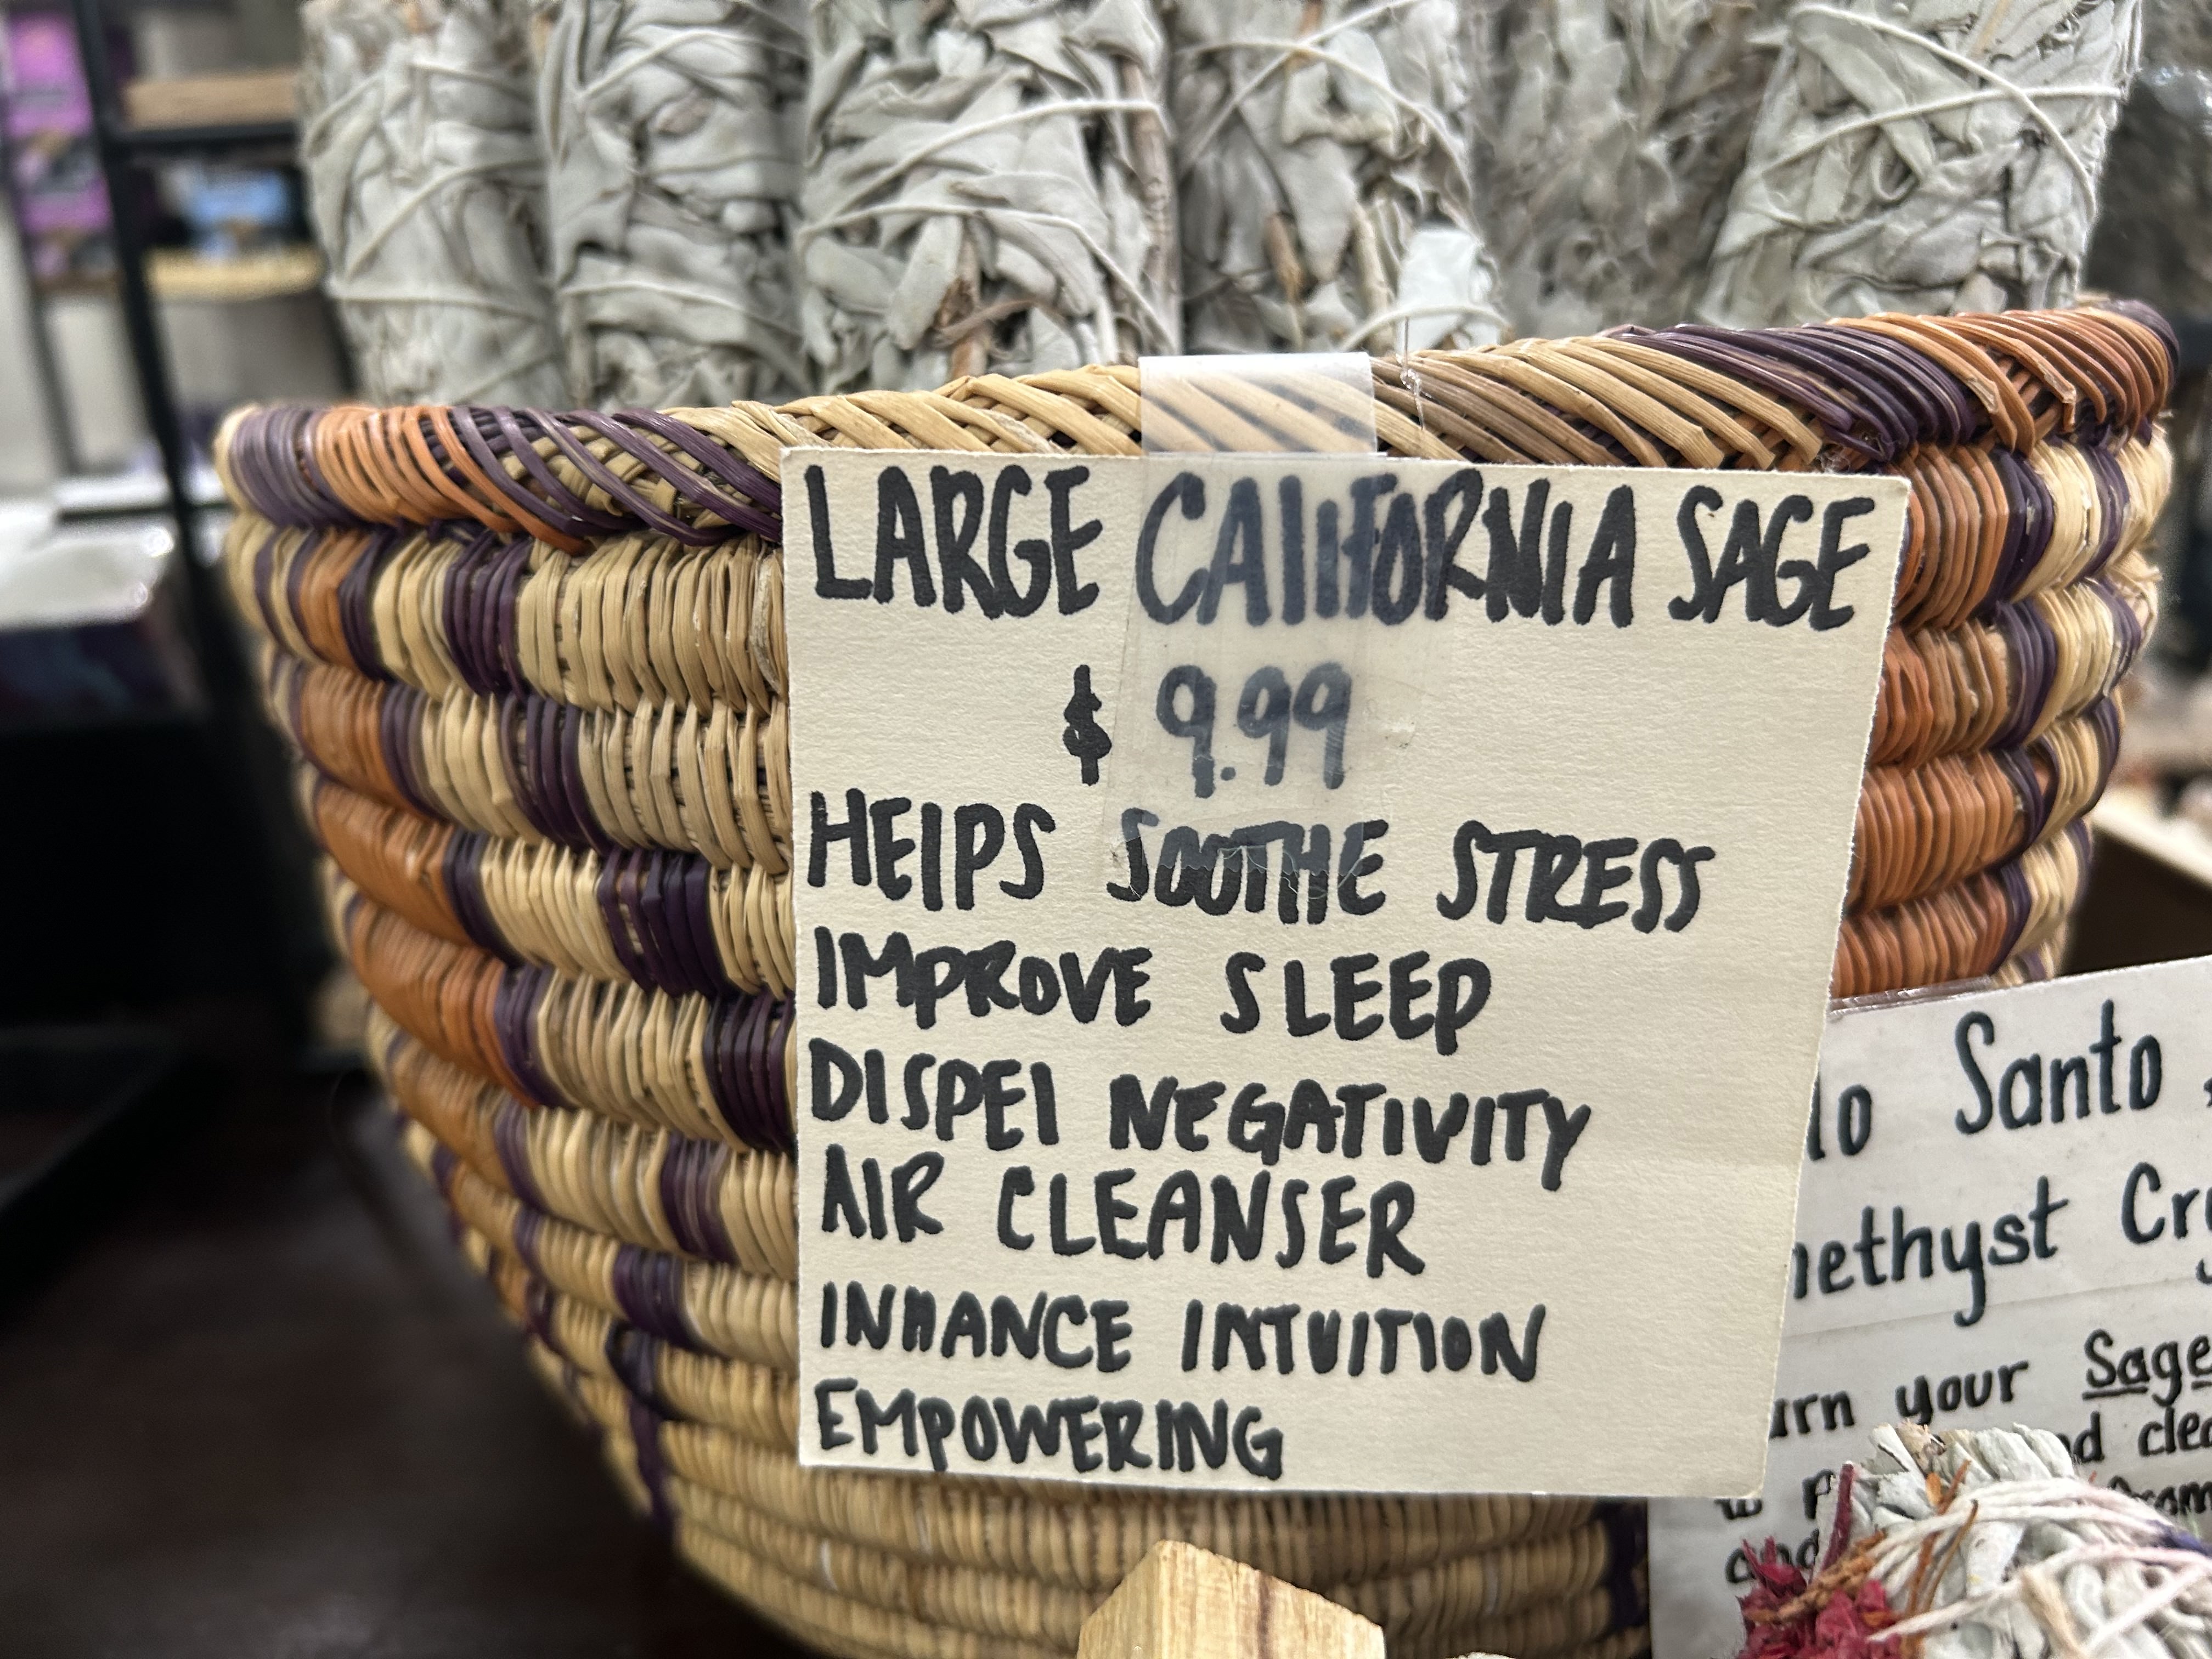 LARGE CALIFORNIA SAGE
$ 9.99
HELPS SOOTHE STRESS
IMPROVE SLEEP
DISPEL NEGATIVITY
AIR CLEANSER
INHANCE INTUITION
EMPOWERING
lo Santo
methyst Cry
urn your Sage
nd clea
to
and